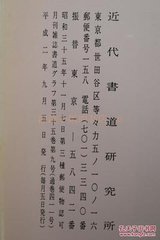 近代書道研究所
東京都世田谷区等々力五ノ一〇ノ一六
郵便番号一五八 電話(七〇一)三三四〇番
振替東京一一五八四番
昭和三十五年十一月七日第三種郵便物認可
月刊雑誌書道グラフ第三十五巻第九号
平成二年九月五日発行(毎月五日発行)